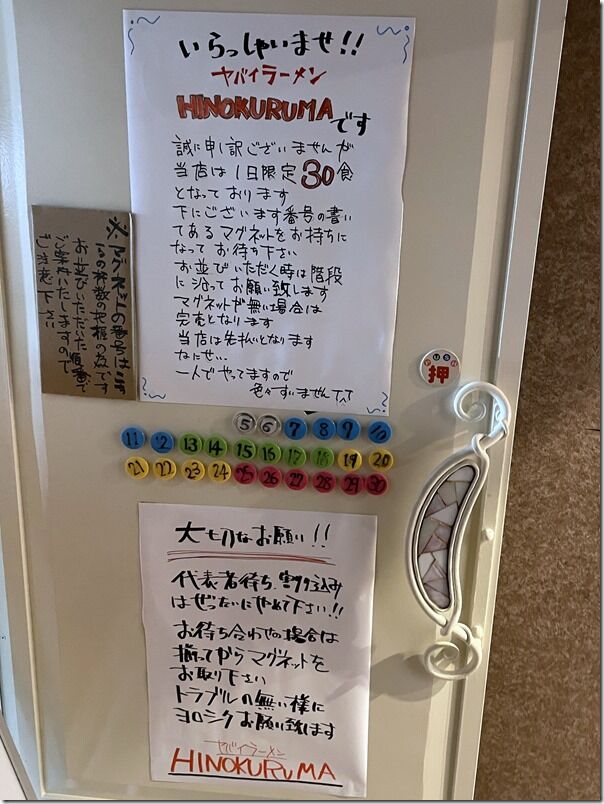 いらっしゃいませ!!
ヤバイラーメン
HINOKURUMAです
誠に申し訳ございませんが
当店は1日限定30食
となっております
下にございます番号の書い
てあるマグネットをお持ちに
なってお待ち下さい
お並びいただく時は階段
に沿ってお願い致します
マグネットが無い場合は
完売となります
当店は先払いとなります
なにせ...
一人でやってますので
色々すいませんT_T
※マグネットの番号はあくまで
の杯数の把握の為です
お並びいただいた順番で
ご案内いたしますので
ご注意下さい
押
5 6 7 8 9 10
11 12 13 14 15 16 17 18 19 20
21 22 23 24 25 26 27 28 29 30
大切なお願い!!
代表者待ち、割り込み
はぜったいにやめて下さい!!
お待ち合わせの場合は
揃ってからマグネットを
お取り下さい
トラブルの無い様に
ヨロシクお願い致します
ヤバイラーメン
HINOKURUMA